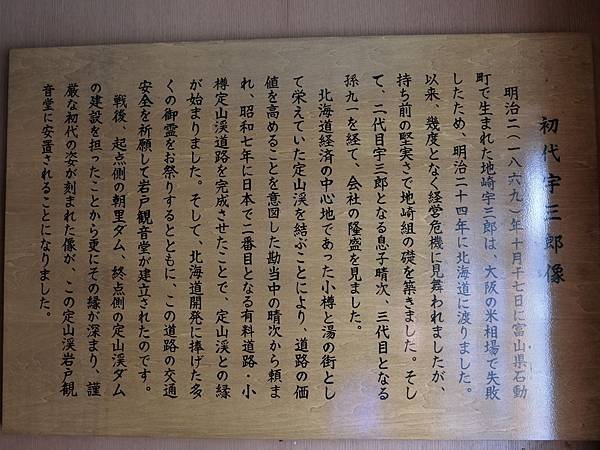 初代宇三郎像
明治二(一八六九)年十月十七日に富山県石動
町で生まれた地崎宇三郎は、大阪の米相場で失敗
したため、明治二十四年に北海道に渡りました。
以来、幾度となく経営危機に見舞われましたが、
持ち前の堅実さで地崎組の礎を築きました。そし
て、二代目宇三郎となる息子晴次、三代目となる
孫九一を経て、会社の隆盛を見ました。
北海道経済の中心地であった小樽と湯の街とし
て栄えていた定山渓を結ぶことにより、道路の価
値を高めることを意図した勘当中の晴次から頼ま
れ、昭和七年に日本で二番目となる有料道路・小
樽定山渓道路を完成させたことで、定山渓との縁
が始まりました。そして、北海道開発に捧げた多
くの御霊をお祭りするとともに、この道路の交通
安全を祈願して岩戸観音堂が建立されたのです。
戦後、起点側の朝里ダム、終点側の定山渓ダム
の建設を担ったことから更にその縁が深まり、謹
厳な初代の姿が刻まれた像が、この定山渓岩戸観
音堂に安置されることになりました。